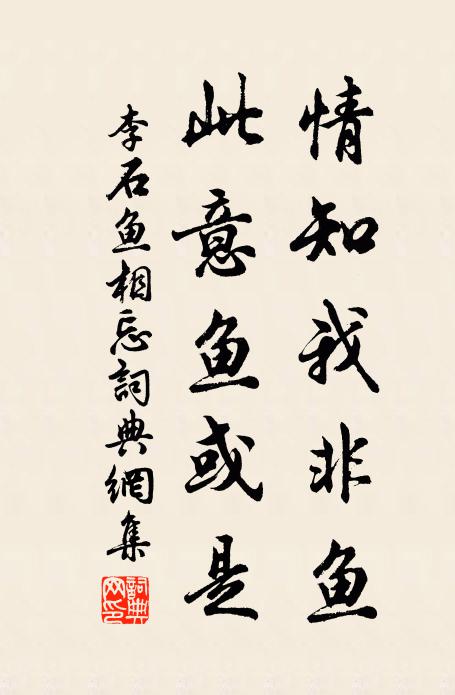 情知我非鱼
此意鱼或是
李石鱼相忘詞典網集
詞典网印